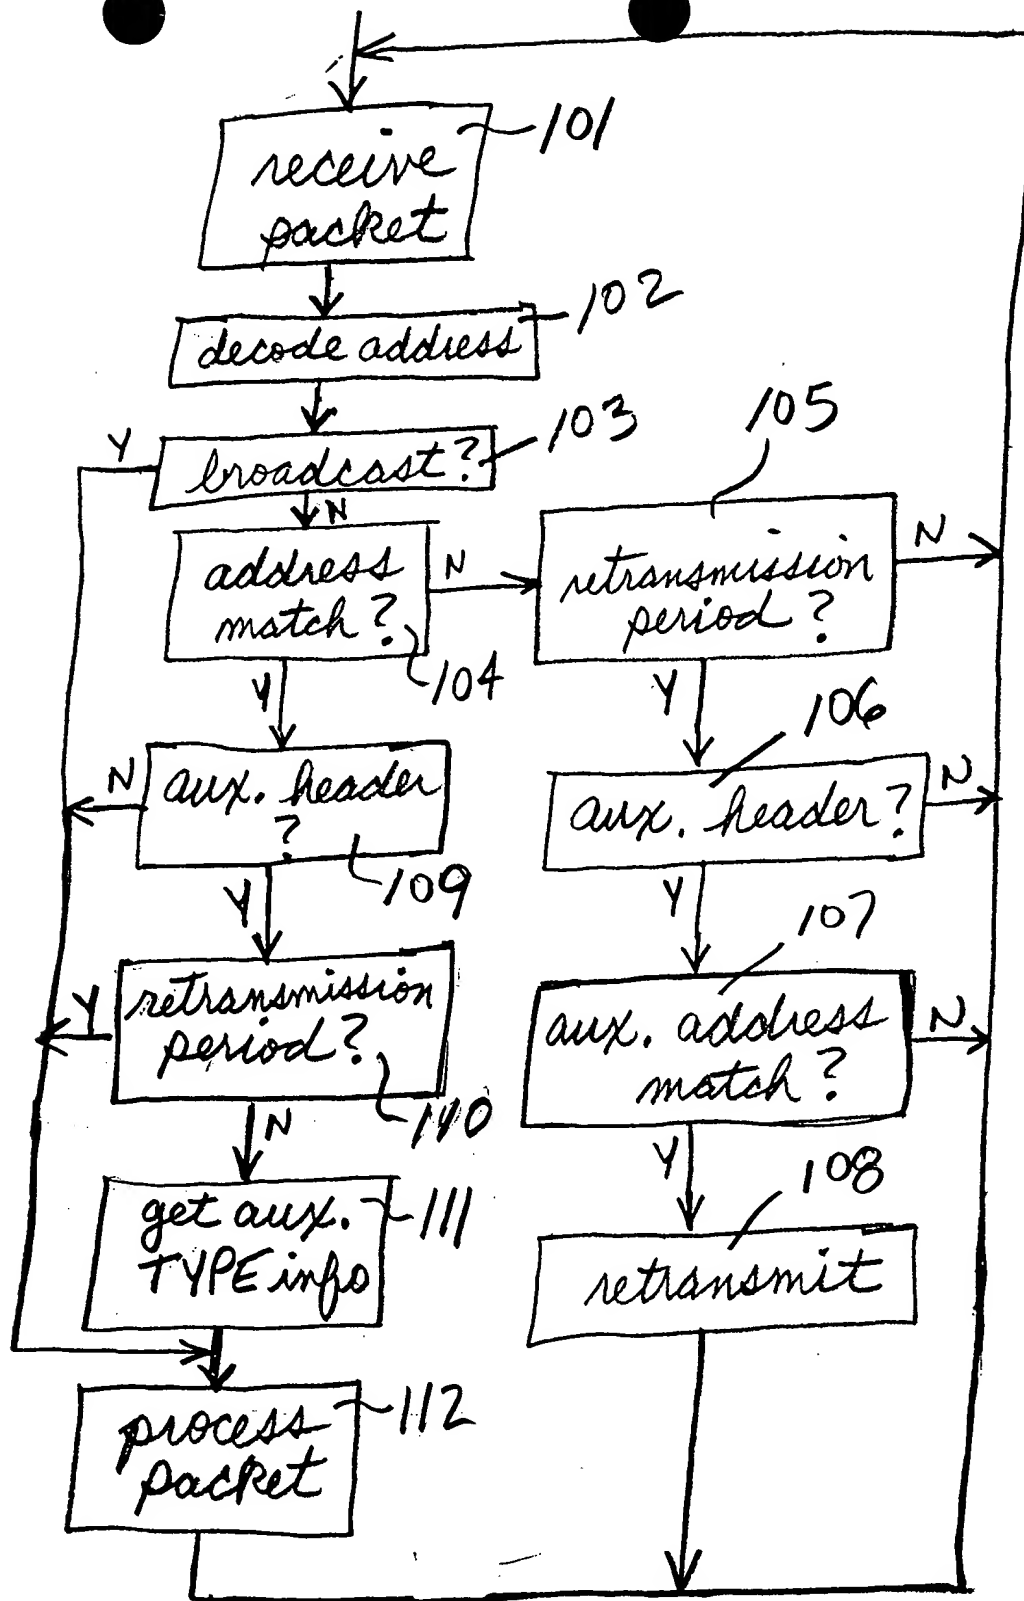 101
receive
packet
102
decode address
103
Y
broadcast?
N
105
address
match?
104
N
retransmission
period?
N
Y
Y
106
aux. header
?
109
N
aux. header?
N
Y
Y
107
retransmission
period?
110
Y
aux. address
match?
N
N
Y
108
get aux.
TYPE info
111
retransmit
process
packet
112